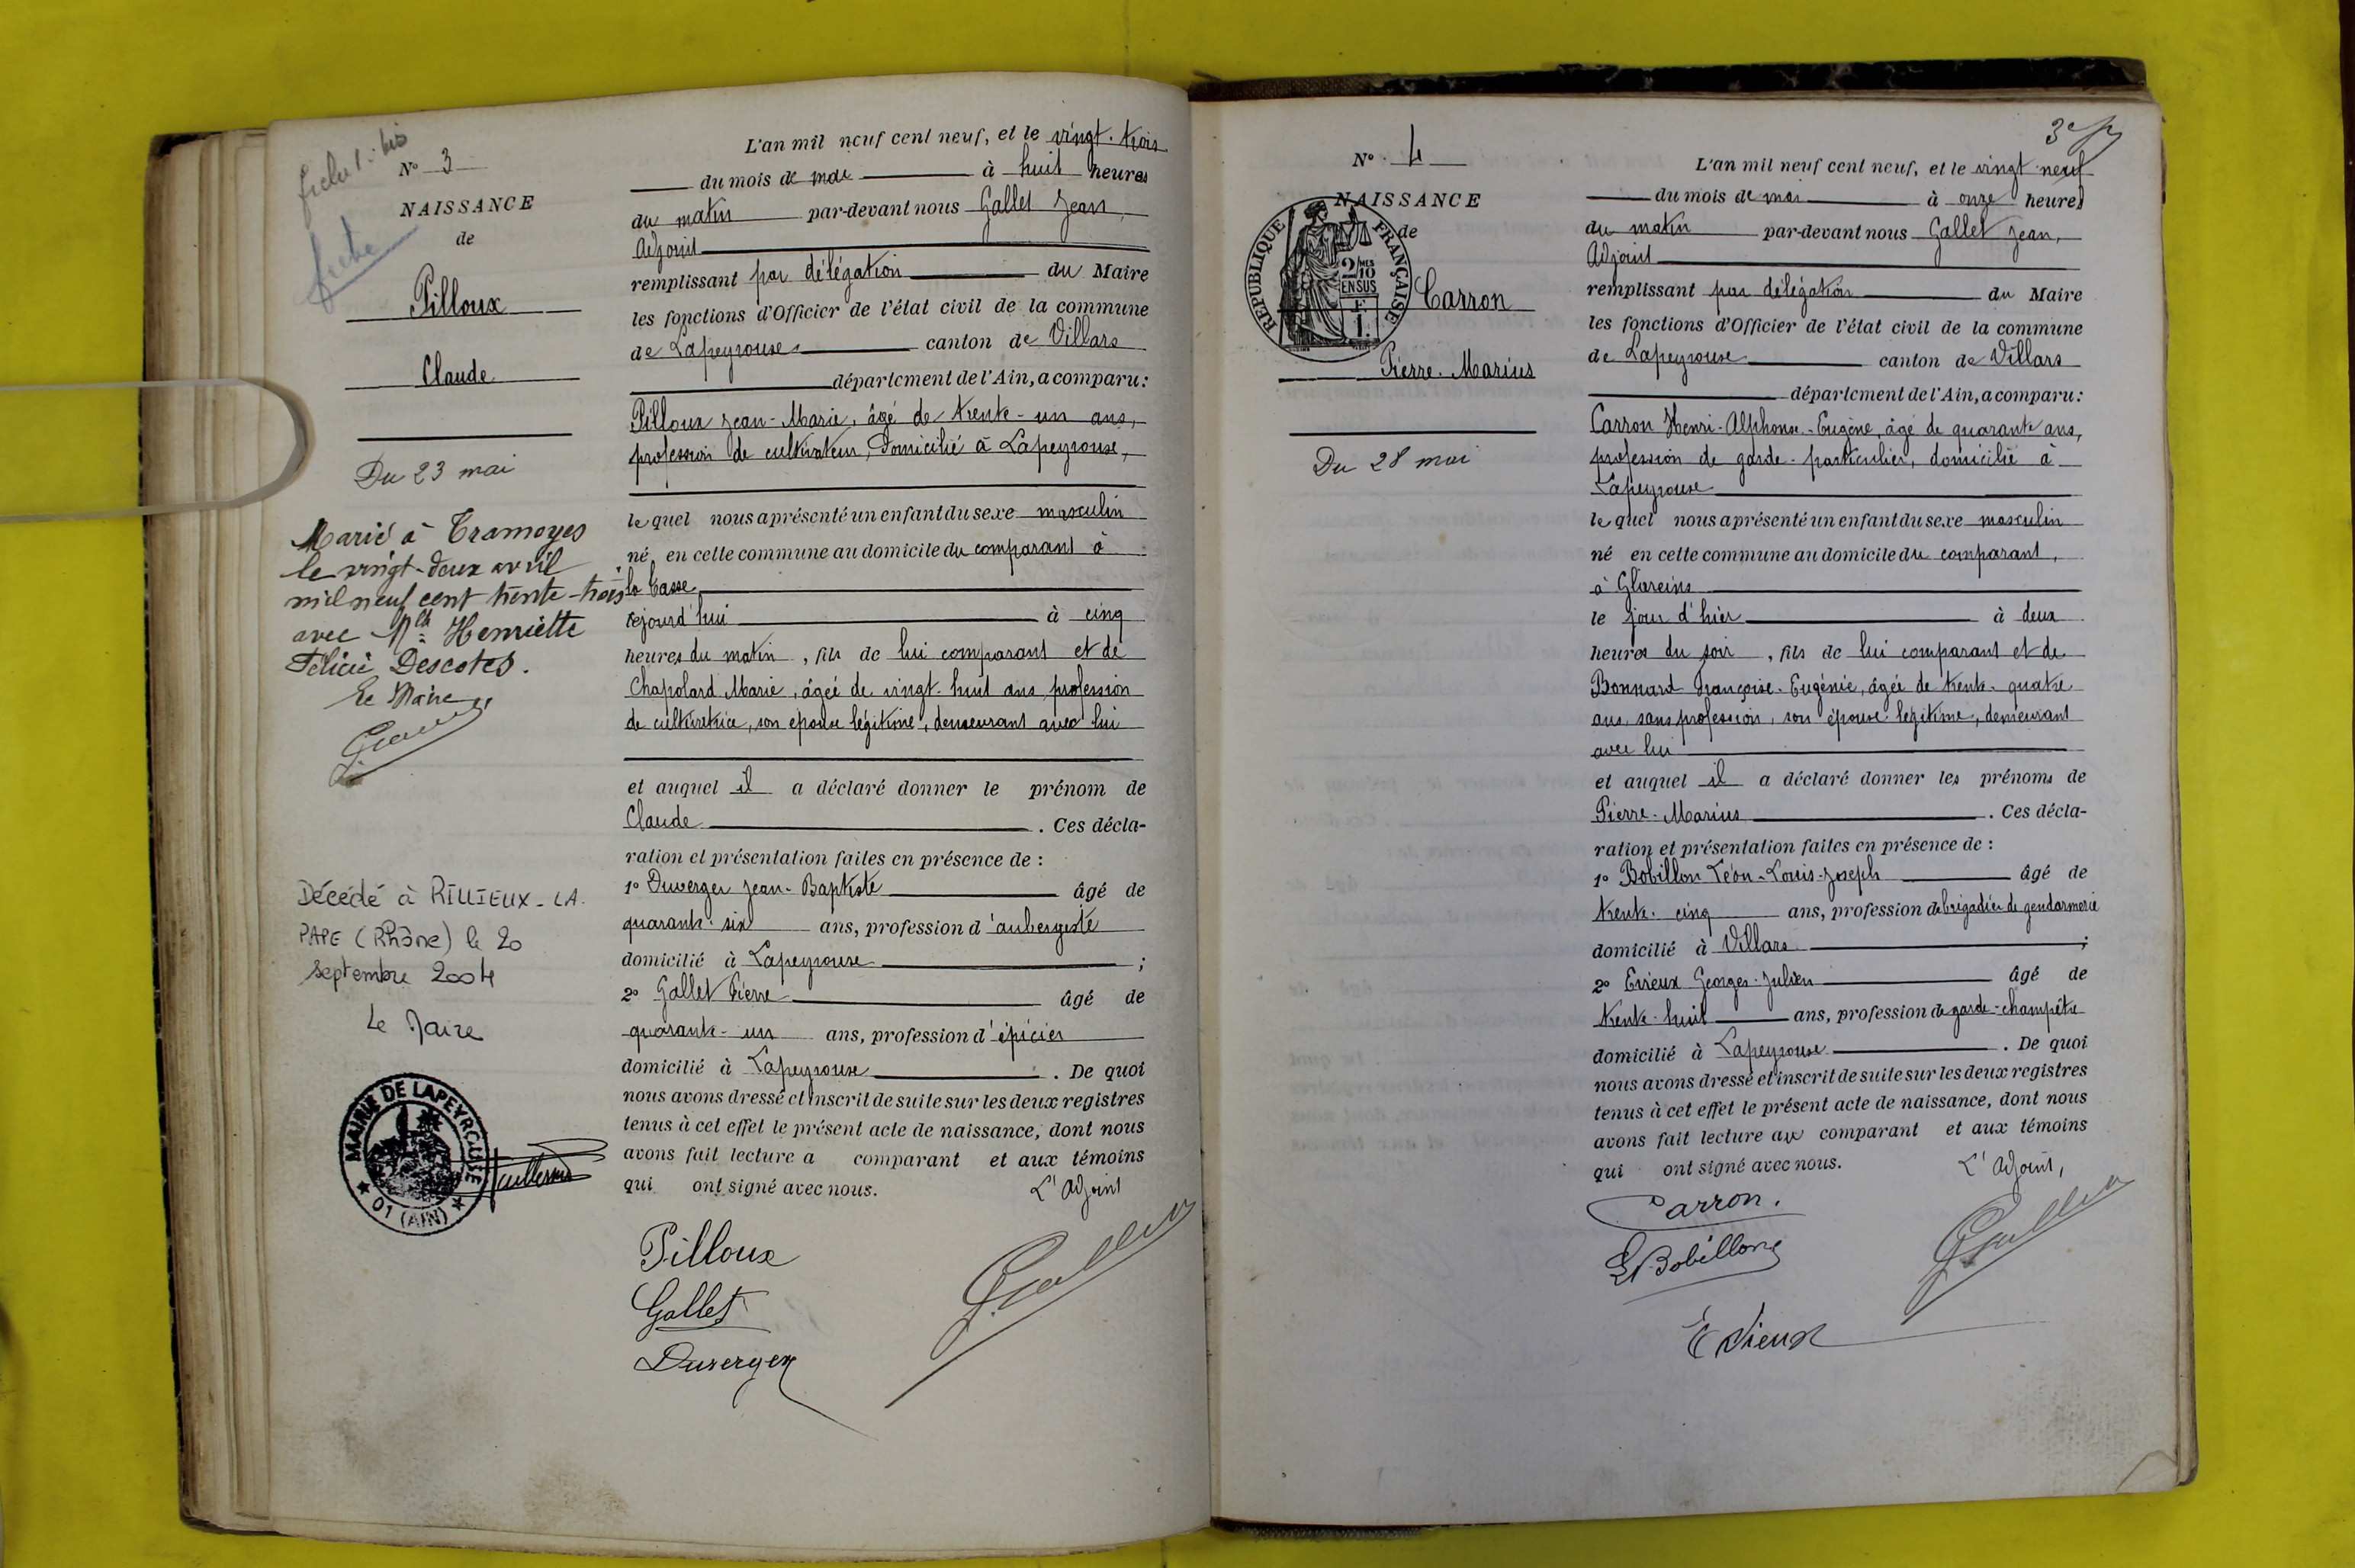 fiche 1. bis
fiche
N° 3
NAISSANCE
de
Pilloux
Claude
Du 23 mai
Marié à Tramoyes
le vingt-deux avril
mil neuf cent trente-trois
avec Mlle Henriette
Félicie Descotes.
Le Maire
Décédé à RILLIEUX-LA-
PAPE (Rhône) le 20
septembre 2004
Le Maire
MAIRIE DE LAPEYROUSE
★ 01 (AIN) ★
L'an mil neuf cent neuf, et le vingt-trois
du mois de mai à huit heures
du matin par-devant nous Gallet Jean,
Adjoint
remplissant par délégation du Maire
les fonctions d'Officier de l'état civil de la commune
de Lapeyrouse canton de Villars
département de l'Ain, a comparu:
Pilloux Jean-Marie, âgé de trente-un ans,
profession de cultivateur, domicilié à Lapeyrouse,
lequel nous a présenté un enfant du sexe masculin
né, en cette commune au domicile du comparant à
la Casse
cejourd'hui à cinq
heures du matin, fils de lui comparant et de
Chapolard Marie, âgée de vingt-huit ans, profession
de cultivatrice, son épouse légitime, demeurant avec lui
et auquel il a déclaré donner le prénom de
Claude. Ces décla-
ration et présentation faites en présence de :
1° Duverger Jean-Baptiste âgé de
quarante-six ans, profession d'aubergiste
domicilié à Lapeyrouse ;
2° Gallet Pierre âgé de
quarante-un ans, profession d'épicier
domicilié à Lapeyrouse. De quoi
nous avons dressé et inscrit de suite sur les deux registres
tenus à cet effet le présent acte de naissance, dont nous
avons fait lecture a comparant et aux témoins
qui ont signé avec nous. L'Adjoint
Pilloux
Gallet
Duverger
J. Gallet
3e
N° 4
NAISSANCE
de
REPUBLIQUE FRANÇAISE
2/MES
10
EN SUS
F
1.
Carron
Pierre-Marius
Du 28 mai
L'an mil neuf cent neuf, et le vingt neuf
du mois de mai à onze heures
du matin par-devant nous Gallet Jean,
Adjoint
remplissant par délégation du Maire
les fonctions d'Officier de l'état civil de la commune
de Lapeyrouse canton de Villars
département de l'Ain, a comparu:
Carron Henri-Alphonse-Eugène, âgé de quarante ans,
profession de garde-particulier, domicilié à
Lapeyrouse
lequel nous a présenté un enfant du sexe masculin
né en cette commune au domicile du comparant,
à Glareins
le jour d'hier à deux
heures du soir, fils de lui comparant et de
Bonnard Françoise-Eugénie, âgée de trente-quatre
ans, sans profession, son épouse légitime, demeurant
avec lui
et auquel il a déclaré donner les prénoms de
Pierre-Marius. Ces décla-
ration et présentation faites en présence de :
1° Bobillon Léon-Louis-Joseph âgé de
trente-cinq ans, profession de brigadier de gendarmerie
domicilié à Villars ;
2° Evieux Georges-Julien âgé de
trente-huit ans, profession de garde-champêtre
domicilié à Lapeyrouse. De quoi
nous avons dressé et inscrit de suite sur les deux registres
tenus à cet effet le présent acte de naissance, dont nous
avons fait lecture au comparant et aux témoins
qui ont signé avec nous. L'Adjoint,
Carron.
L Bobillon
J. Gallet
Evieux